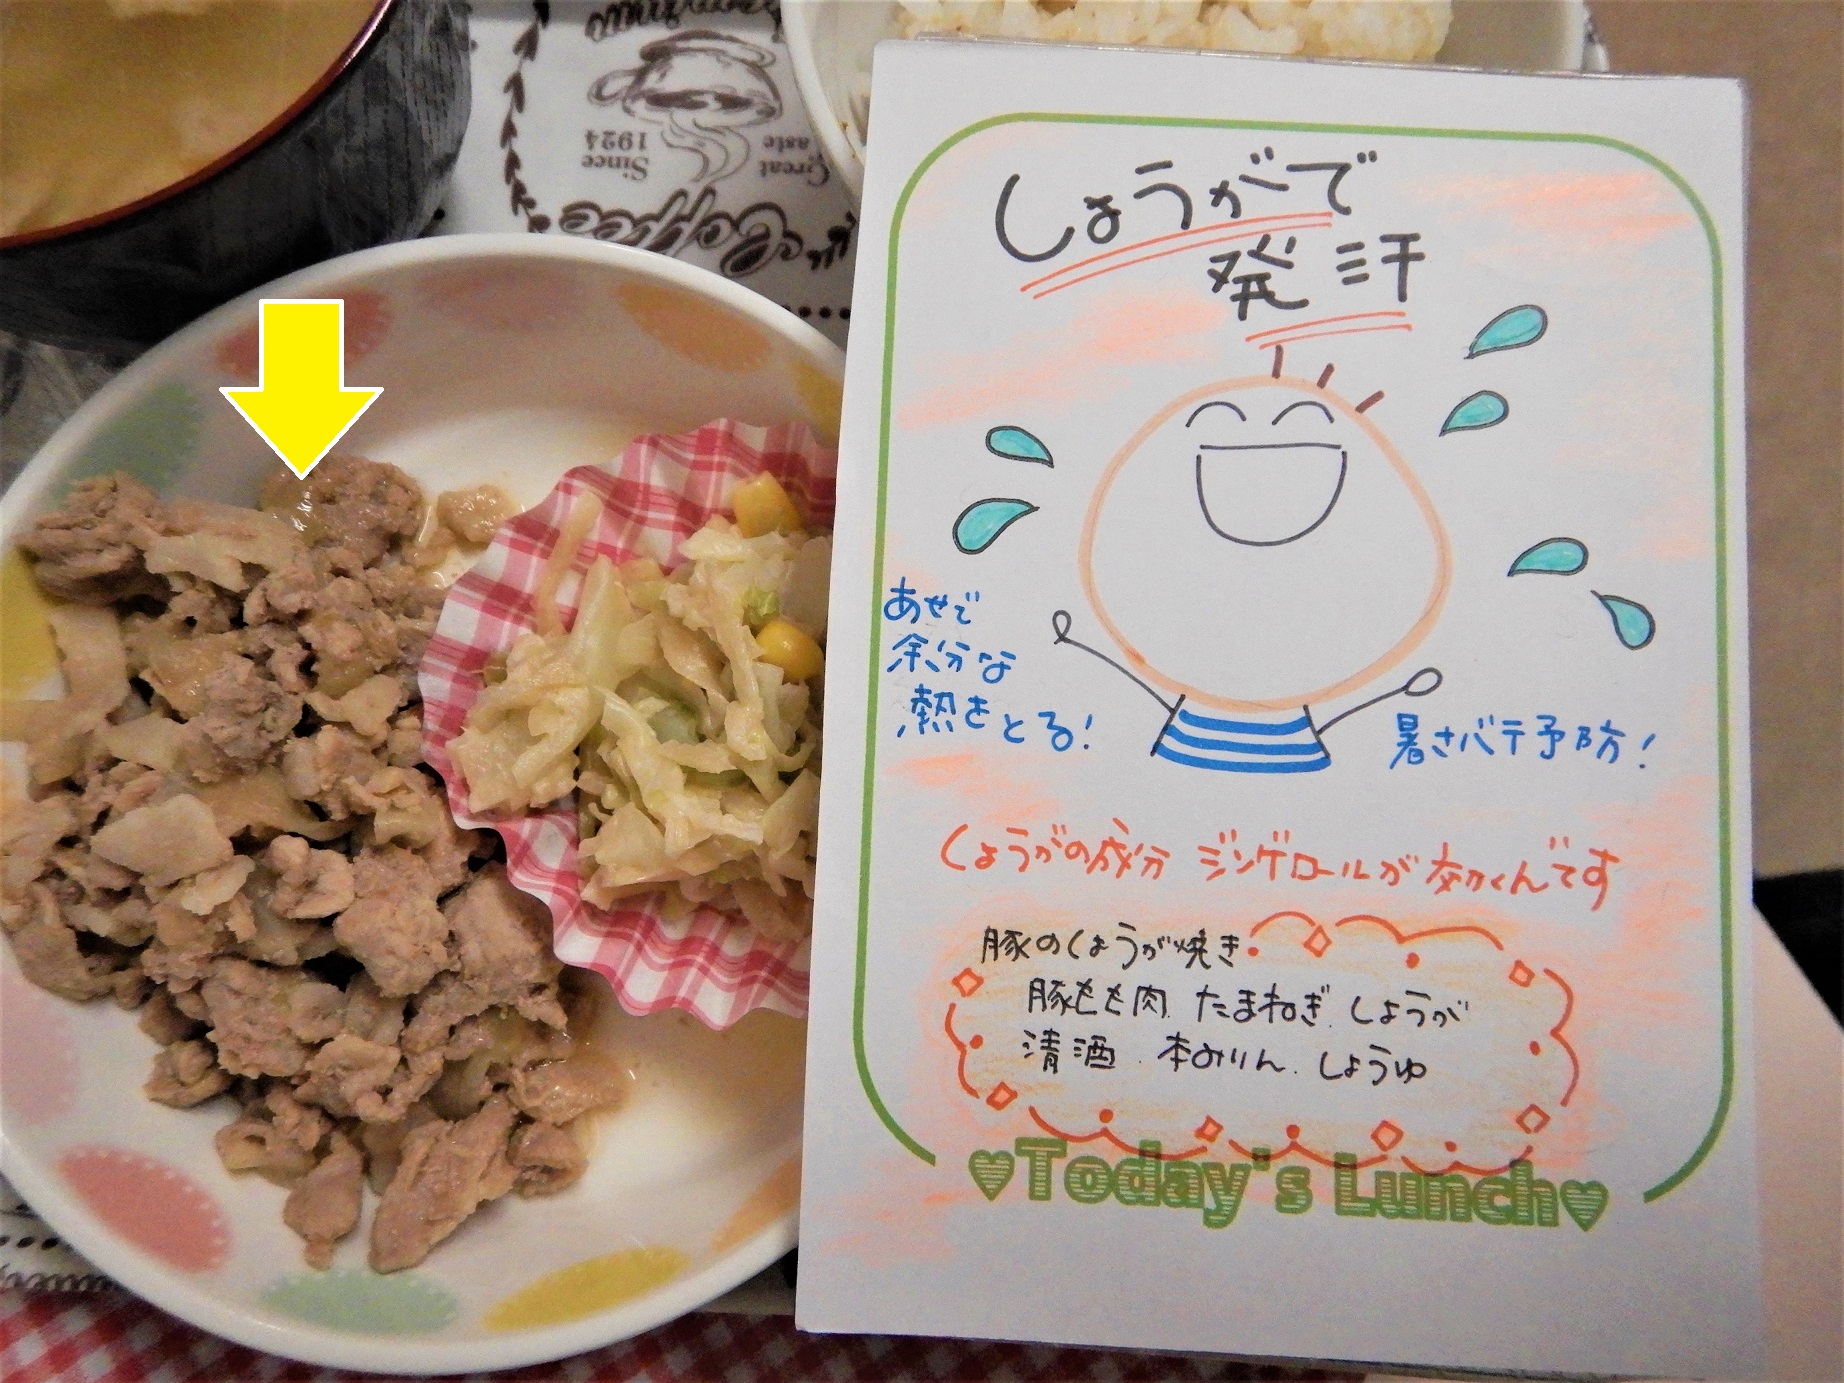 Coffee
Great Taste
Since 1924
しょうがで
発汗
あせで
余分な
熱をとる!
暑さバテ予防!
しょうがの成分 ジンゲロールが効くんです
豚のしょうが焼き
豚もも肉 たまねぎ.しょうが
清酒.本みりん.しょうゆ
♥Today's Lunch♥